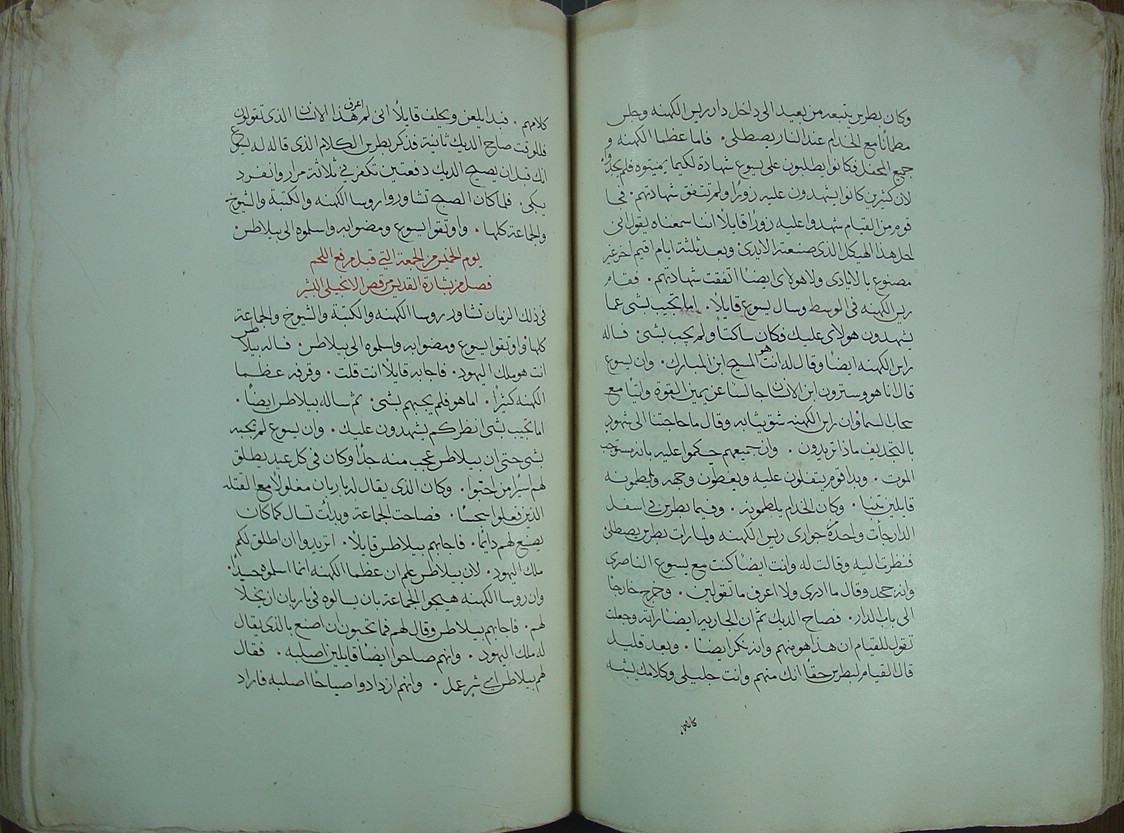 وكان بطرس يتبعه من بعيد الى داخل دار ريس الكهنه وجلس
مطانا مع الخدام عند النار يصطلى. فاما عظما الكهنه و
جميع المحفل فكانوا يطلبون على يسوع شهادة لكيما يميتوه فلم يجدوا
لان كثيرين كانوا يشهدون عليه زورًا ولم تتفق شهادتهم.
قوم من القيام شهدوا عليه زورًا قايلاً اننا سمعناه يقول انى
احل هذا الهيكل الذى صنعته الايدى وبعد ثلثة ايام اقيم اخر غير
مصنوع بالايادى ولا هولاى ايضًا اتفقت شهادتهم. فقام
ريس الكهنه فى الوسط وسال يسوع قايلاً. اما تجيب بشى عما
يشهدون هولاى عليك فكان ساكتًا ولم يجب بشى. فساله
رايس الكهنه ايضًا وقال له انت هو المسيح ابن المبارك. وان يسوع
قال انا هو وسترون ابن الانسان جالسًا عن يمين القوة واتيًا مع
سحاب السما وان رايس الكهنه شق ثيابه وقال ما حاجتنا الى شهود
بالتجديف ماذا تريدون. وان جميعهم حكموا عليه بانه يستوجب
الموت. وبدا قوم يتفلون عليه ويغطون وجهه ويلطمونه
قايلين تنبا. وكان الخدام يلطمونه. وفيما بطرس فى اسفل
الدار جأت واحدة جوارى ريس الكهنه ولما رات بطرس يصطلى
فنظرت اليه وقالت له وانت ايضًا كنت مع يسوع الناصرى
وانه جحد وقال ما ادرى ولا اعرف ما تقولين. وخرج خارجًا
الى باب الدار. فصاح الديك ثم ان الجاريه ايضًا راته وجعلت
تقول للقيام ان هذا هو منهم وانه نكر ايضًا. وبعد قليل
قال القيام لبطرس حقًا انك منهم وانت جليلى وكلامك يشبه
كلامهم.
كلامهم. فبدا يلعن ويحلف قايلاً انى لم اعرف هذا الانسان الذى تقولون
فللوقت صاح الديك ثانية فذكر بطرس الكلام الذى قاله له يسوع
انك قبل ان يصيح الديك دفعتين تنكرنى ثلاثة مرار وانفرد
يبكى. فلما كان الصبح تشاوروا روسا الكهنه والكتبة والشيوخ
والجماعة كلها. واوثقوا يسوع ومضوا به واسلموه الى بيلاطس.
يوم الخميس من الجمعة التى قبل مرفع اللحم
فصل من بشارة القديس مرقص الانجيلى البشير
فى ذلك الزمان تشاور روسا الكهنه والكتبة والشيوخ والجماعة
كلها واوثقوا يسوع ومضوا به واسلموه الى بيلاطس. فساله بيلاطس
انت هو ملك اليهود. فاجابه قايلاً انت قلت. وقرفه عظما
الكهنه كثيرًا. اما هو فلم يجبهم بشى. ثم ساله بيلاطس ايضًا.
اما تجيب بشى انظر كم يشهدون عليك. وان يسوع لم يجبه
بشى حتى ان بيلاطس عجب منه جدًا وكان فى كل عيد يطلق
لهم اسيرًا من احبوا. وكان الذى يقال له باربان مغلولًا مع القتله
الذين فعلوا سجسًا. فصاحت الجماعة وبدأت تسال كما كان
يصنع لهم دايمًا. فاجابهم بيلاطس قايلًا. اتريدوا ان اطلق لكم
ملك اليهود. لان بيلاطس علم ان عظما الكهنه انما اسلموه حسدًا.
وان روسا الكهنه هيجوا الجماعة بان يسالوه فى باربان ان يخلا
لهم. فاجابهم بيلاطس وقال لهم فما تحبون ان اصنع بالذى يقال
له ملك اليهود. وانهم صاحوا ايضًا قايلين اصلبه. فقال
لهم بيلاطس اى شر عمل. وانهم ازدادوا صياحًا اصلبه فاراد